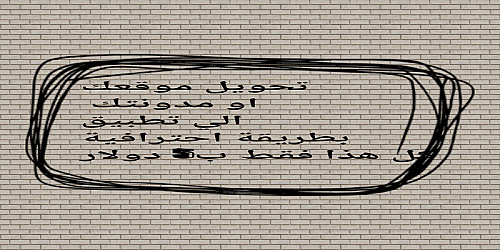 تحويل موقعك
او مدونتك
الي تطبيق
بطريقة احترافية
كل هذا فقط ب5 دولار